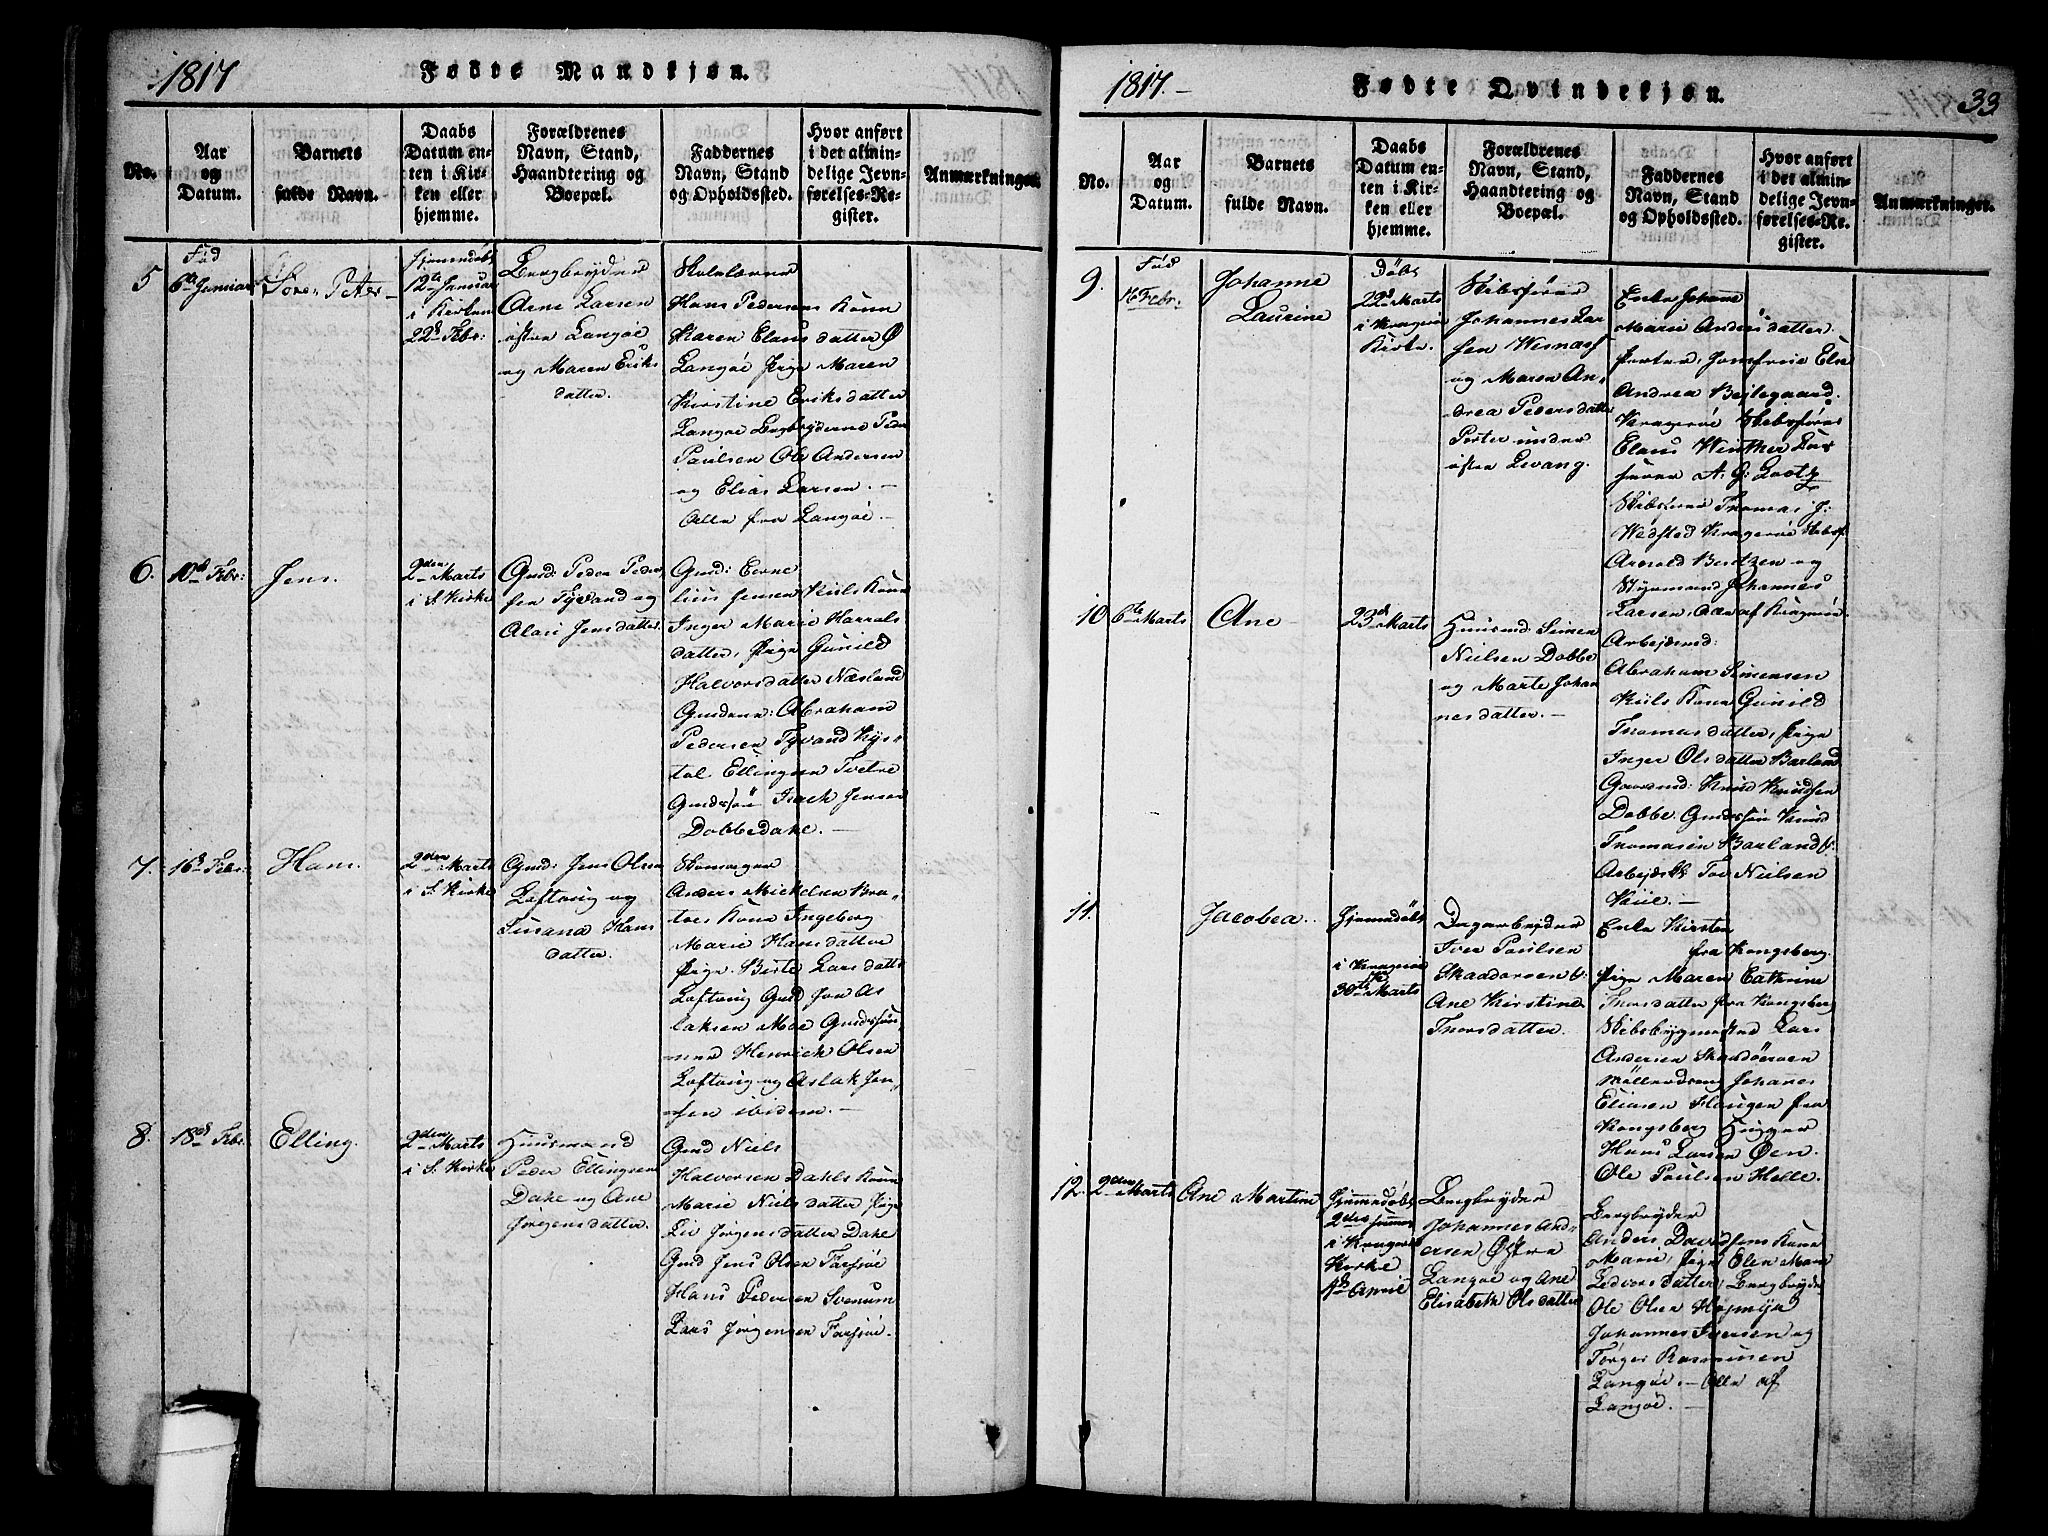 1817
Fødte Mandkjøn.
No.
Aar
og
Datum.
Barnets
fulde Navn.
Daabs
Datum en-
ten i Kir-
ken eller
hjemme.
Forældrenes
Navn, Stand,
Haandtering og
Boepæl.
Faddernes
Navn, Stand
og Opholdssted.
Hvor anført
i det almin-
delige Jevn-
førelses-Re-
gister.
Anmærkninger.
5
Fød
6te Januar
Søren Peter
hjemmedøbt
12te Januar
i Kirken
22de Febr:
Bergbryder
Arne Larsen
østre Langøe
og Maren Eriks
datter.
Skolelærer
Hans Pedersens Kone
Karen Claus datter Ø
Langøe Pige Maren
Kirstine Eriksdatter
Langøe Bergbryderne Peder
Paulsen Ole Andersen
og Elias Larsen. —
Alle fra Langøe. —
6.
10de Febr:
Jens.
2den Marts
i S. Kirke
Gmd: Peder Peder
sen Tyvand og
Alasi Jensdatter.
Gmd:
Jensen Kiils Kone
Inger Marie Harrals
datter, Pige Gunild
Halvorsdatter Næslund
Gmdene: Abraham
Pedersen Tyvand Kys
tol Ellingsen Tvetne
Gmdssøn Isach Jensen
Dobbedake. —
7.
16de Febr:
Hans.
2den Marts
i S. Kirke
Gmd: Jens Olsen
Loftvig og
Susana Hans
datter.
Skomager
Anders Mickelsen Bra-
tres Kone Ingeborg
Marie Hansdatter
Pige Birte Lars datter
Loftvig Gmd Jon As
laksen Moe Gmdssøn-
ner Henrich Olsen
Loftvig og Aslak Jen-
sen ibidem. —
8.
18de Febr.
Elling.
2den Marts
i S. Kirke
Huusmand
Peder Ellingsen
Dake og Ane
Jørgensdatter.
Gmd Niels
Halvorsen Dahls Kone
Marie Niels datter Pige
Liv Jørgensdatter Dake
Gmd Jens Olsen Farsjøe
Hans Pedersen Svenum
Lars Jørgensen Farsjøe.
1817. —
Fødte Qvindekjøn.
33
No.
Aar
og
Datum.
Barnets
fulde Navn.
Daabs
Datum en-
ten i Kir-
ken eller
hjemme.
Forældrenes
Navn, Stand,
Haandtering og
Boepæl.
Faddernes
Navn, Stand
og Opholdssted.
Hvor anført
i det almin-
delige Jevn-
førelses-Re-
gister.
Anmærkninger.
9.
Fød
16 Febr:
Johanne
Laurine
Døbt
22de Marts
i Kragerøe
Kirke.
Skibsfører
Johannes Lar
sen
og Maren An-
drea Pedersdatter
Porter under
østre Levang.
Enke Johanne
Marie Anders datter
Porter, Jomfrue Else
Andrea Bejlegaard.
Kragerøe Skibsfører
Claus Winther
A. G:
Skibsfører Thomas J:
Wedsted Kragerøe Skibsf.
Arnold Bentzen og
Styrmand Johannes
Larsen, alle af Kragerøe.
10
6te Marts
Ane
23de Marts
Huusmd: Simen
Nielsen Dobbe
og Marte Johan
nesdatter. —
Arbejdsmd:
Abraham Simensen
Kiils Kone Gunild
Thomasdatter, Pige
Inger Olsdatter Barland
Gaardmd: Knud Knudsen
Dobbe Gmdssøn Knud
Thomasen Barland &:
Arbejdsk: Tov Nielsen
Kiil. —
11.
Jacobea.
Hjemmedøbt
i Kragerøe
Kk
30te Marts
Dagarbejder
Iver Paulsen
Skaadøroen &:
Ane Kirstine
Thorsdatter.
Enke Kirsten
fra Kongsberg.
Pige Maren Cathrine
Thorsdatter fra Kongsberg
Skibsbygmester Lars
Andersen Skaadøeroen
Møllerdreng Johanes
Eliasen Haugen fra
Kongsberg Hugger
Hans Larsen Øen.
Ole Paulsen Helle.
12.
2den Marts
Ane Martine
Hjemmedøbt
2den
i Kragerøe
Kirke
4de April
Bergbryder
Johannes And-
ersen Østre
Langøe og Ane
Elisabeth Olsdatter
Bergbryder
Anders Davidsens Kone
Marie, Pige Elen Marie
Ledvorsdatter, Bergbryder
Ole Olsen Højmyr
Johannes Iversen og
Torger Rasmusen
Langøe. — Alle af
Langøe. —